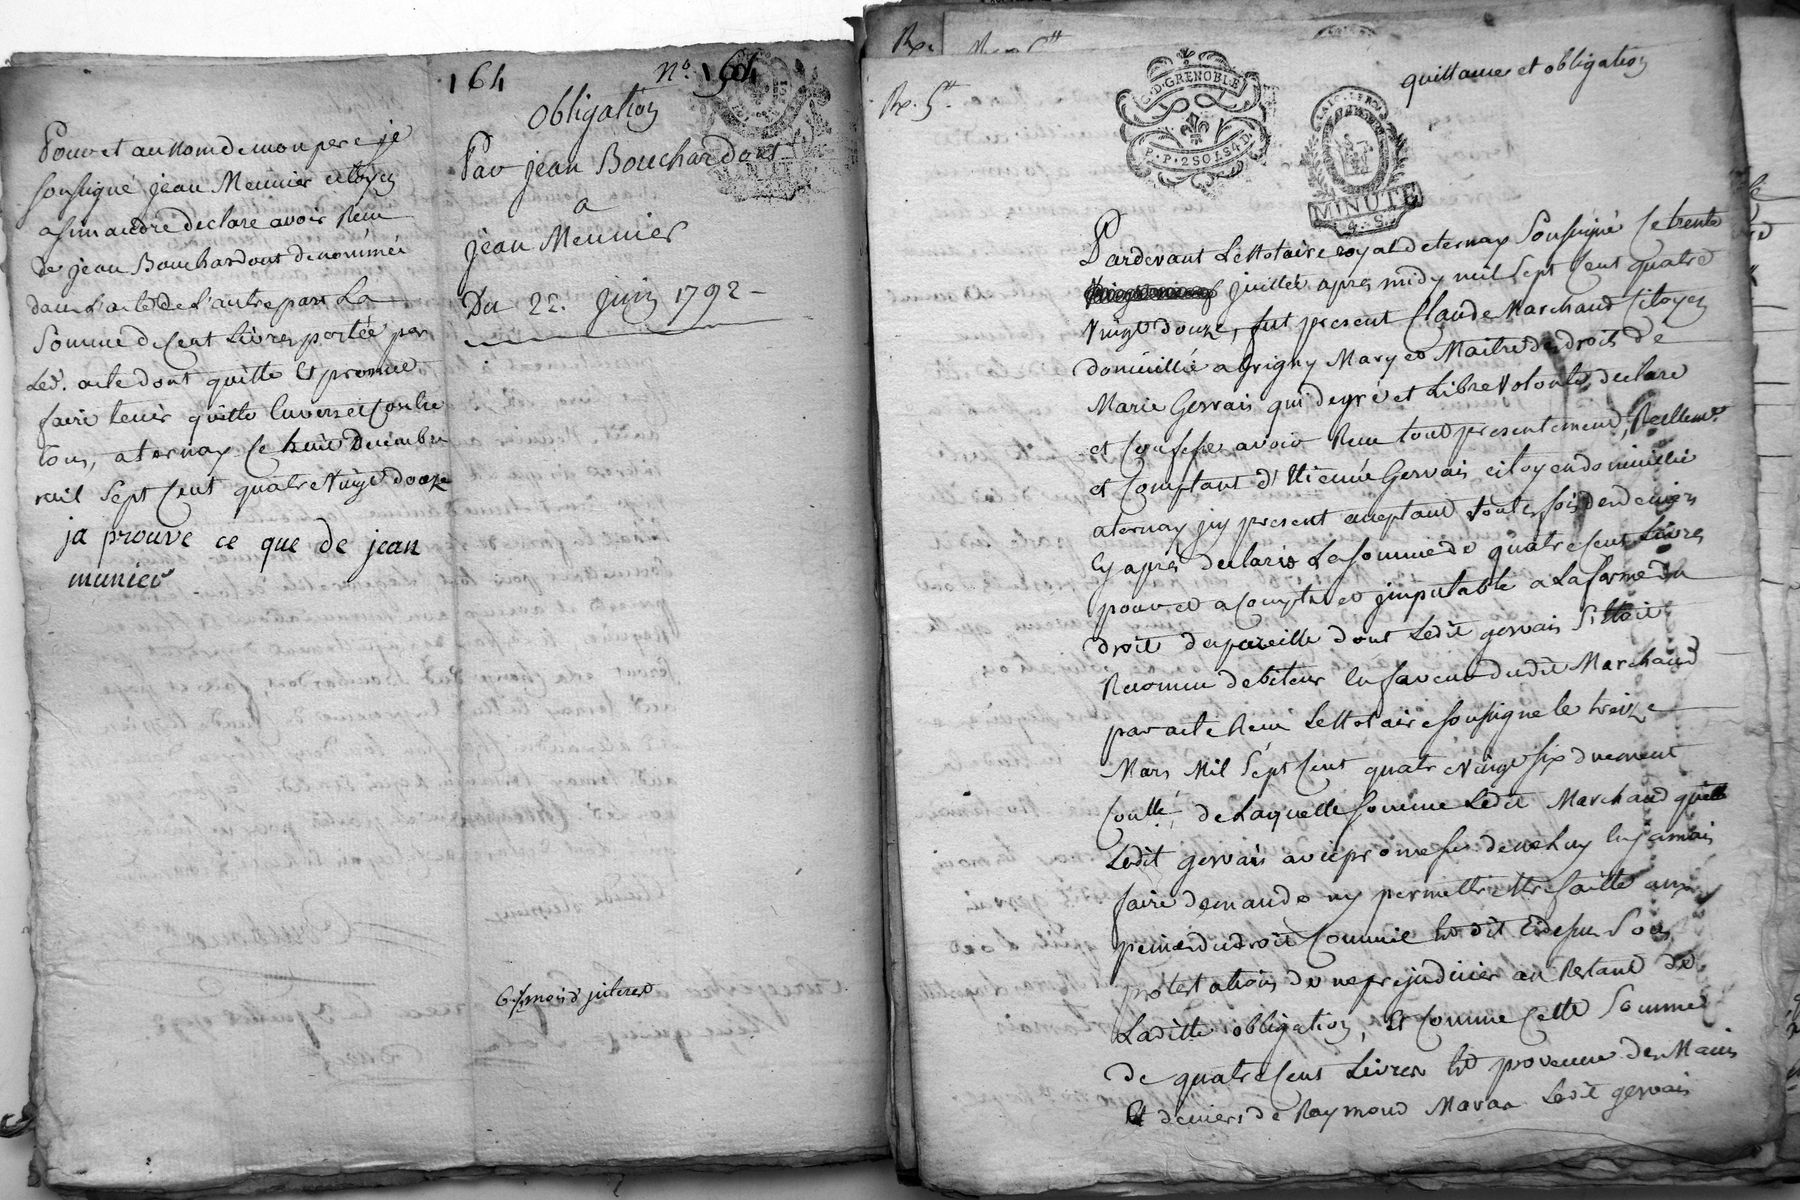 164
n° 164
obligation
Par jean Bouchardont
a
jean Meunier
Du 22. juin 1792
Pour et au nom de mon pere je
soussigné jean Meunier citoyen
a simandre declare avoir Recu
de jean Bouchardont denommée
dans l'acte de l'autre part La
Somme de Cent Livres portée par
Led. acte dont quitte et promet
faire tenir quitte Envers et Contre
tous, a ternay Ce huit Decembre
mil Sept Cent quatre Vingt douze
ja prouve ce que de jean
munier
6. mois d'jnterest
Rx. 5ᵗᵗ
quittance et obligation
G.D. GRENOBLE
P.P. 2 SOLS 4 D.
LA LOI LE ROI
MINUTE
4. S.
Pardevant Le Notaire royal de ternay Soussigné Ce trente
juillet apres midy mil Sept Cent quatre
Vingt douze, fut present Claude Marchand Citoyen
domicillié a Grigny Mary et Maitre des droits de
Marie Gervais qui de gré et Libre Volonté declare
et Confesse avoir Recu tout presentement, Reellemᵗ
et Comptant d'Etienne Gervais citoyen domicillié
a ternay jcy present acceptant toutes fois des deniers
Cy après declarés La somme de quatre Cent Livres
pour et a Compte et jmputable a La forme du
droit de pareille dont Ledit gervais S'Etoit
Reconnu debiteur En faveur dudit Marchand
par acte Recu Le Notaire soussigné le treize
Mars Mil Sept Cent quatre Vingt six duement
Coullé, de Laquelle somme Ledit Marchand quitte
Ledit gervais avec promesse de ne Luy En jamais
faire demande ny permettre Etre faitte aux
peines du droit Comme Est dit Cidessus Sous
protestations de ne prejudicier au Restant de
Laditte obligation, Et Comme Cette Somme
de quatre Cent Livres Est provenue des Mains
Et deniers de Raymond Maras Ledit gervais